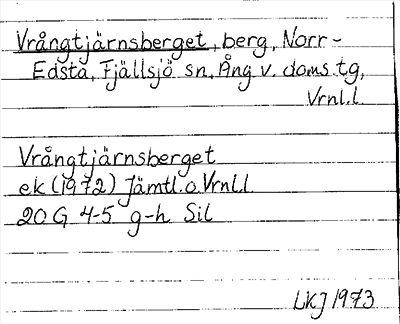 Vrångtjärnsberget, berg, Norr-
Edsta, Fjällsjö sn, Ång v. doms.tg,
Vrnl.l.
Vrångtjärnsberget
ek (1972) Jämtl.o.Vrnl.l.
20 G 4-5 g-h Sil
LKJ 1973